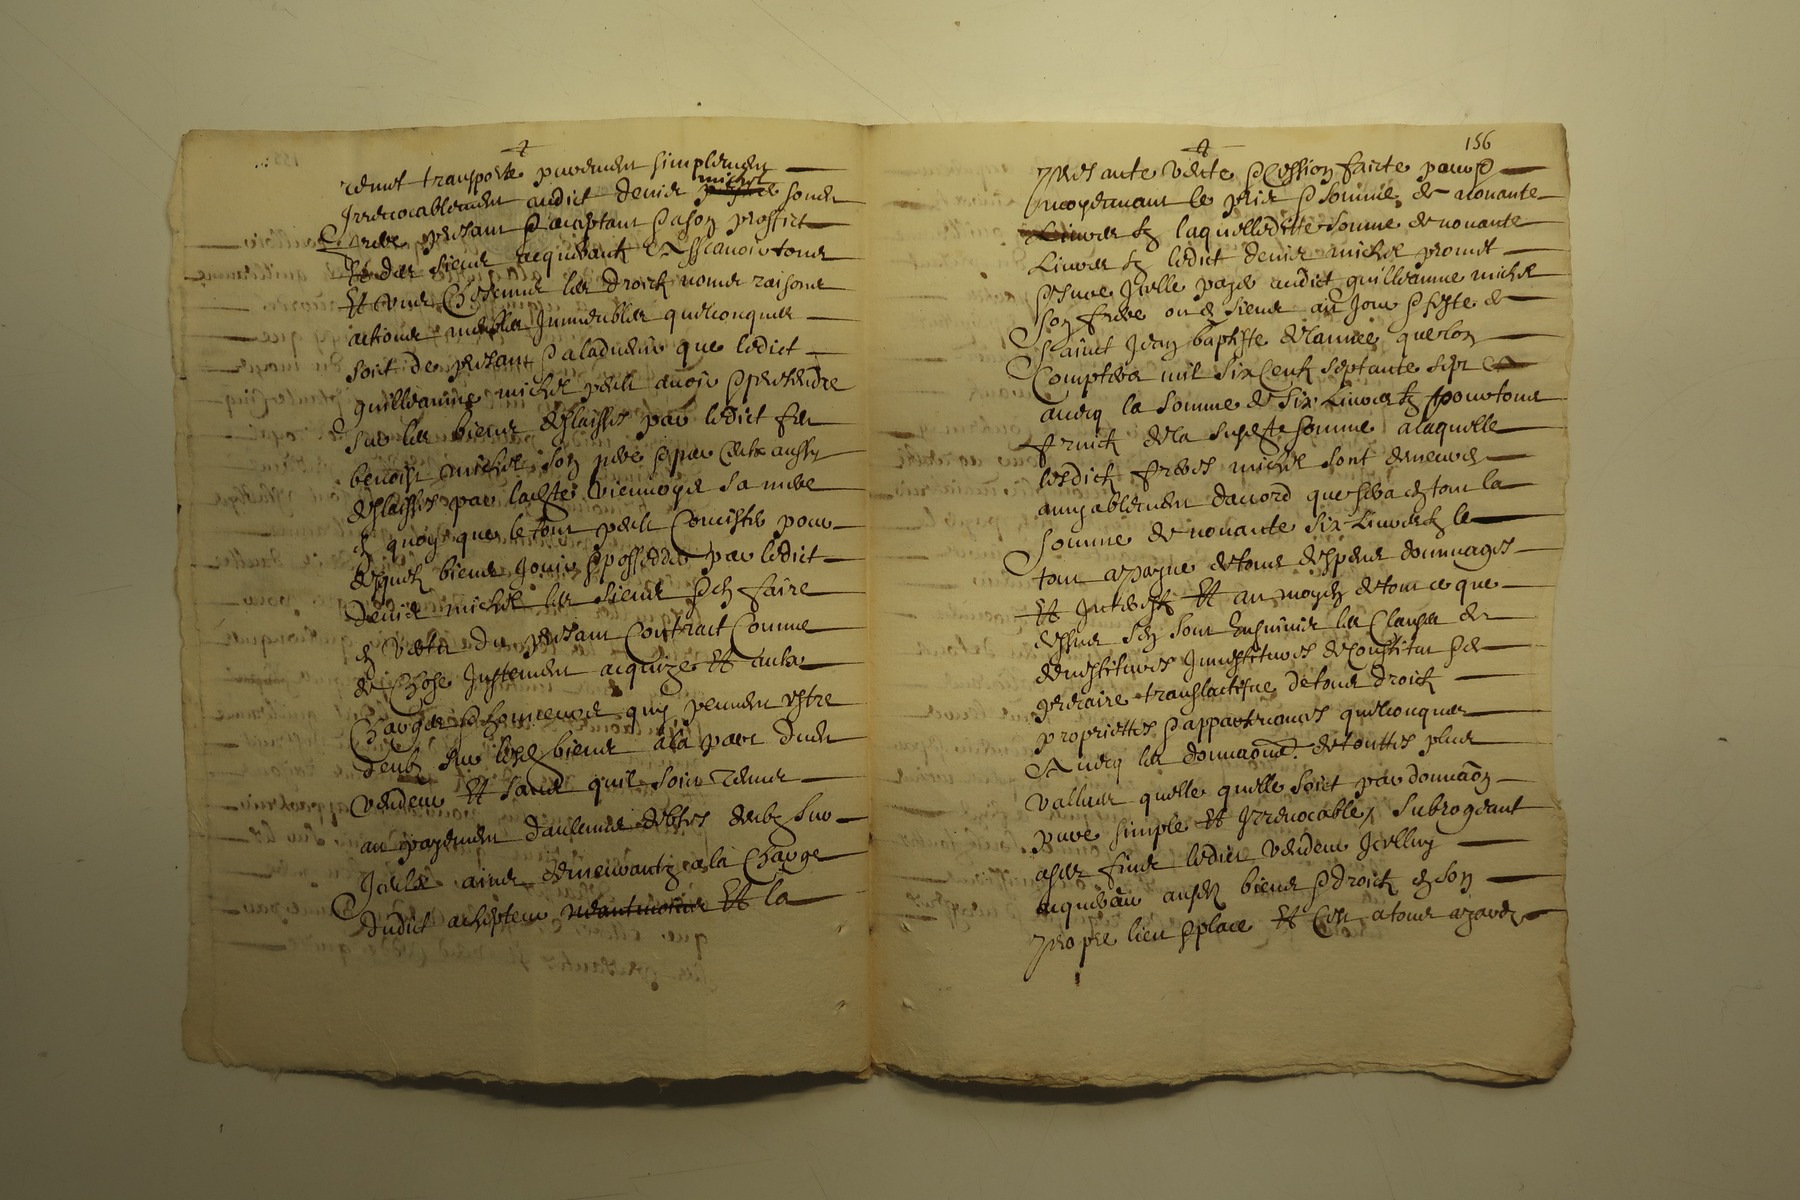 remet transporte purement simplement
Irrevocablement audict Denis michel son
frere present & acceptant & a son proffict
& des siens acquerantz Assçavoir tous
Et uns Chescuns les droictz noms raisons
actions meubles Immeubles quelconques
soit de present & a ladvenir que ledict
guilleaume michel peult avoir & prethendre
sur les biens delaissés par ledict feu
benoist michel son pere & peu ceulx aussy
delaissés par ladicte viennoyse sa mere
en quoy que le tout peult Consister pour
desquelz biens Jouir & posseder par ledict
Denis michel les siens & en faire
en vertu du present Contract Comme
de Chose Justement acquize Et aulx
Charges & honneurs quy peuvent estre
deubz sur lesd biens a la part dudit
vendeur Et sans quil soit tenus
au payement daulcunes debtes deubz sur
Iceulx ains demeurantz a la Charge
dudict achepteur neantmoins Et la
156
presante vente & Cession faicte pour &
moyennant le prix & somme de nonante
Livres tz laquelle dicte somme de nonante
Livres tz ledict denis michel promet
& sera Icelle payer audict guilleaume michel
son frere ou es siens au Jour & feste de
Sainct Jean baptiste de lannée que lon
Comptera mil six Centz septante sept
avecq la somme de six Livres tz pour tous
fruictz de la susdicte somme a laquelle
lesdictz freres michel sont demeurés
amyablement daccord que sera en tout la
somme de nonante six Livres tz le
tout a payne de tous despens dommages
Et Interestz Et au moyen de tout ce que
dessus s'en sont Ensuivis les Clauses de
devestitures Investitures de Constitut & de
precaire translactifve de tous droictz
proprietés & appartenances quelconques
Avecq les donnaons de touttes plus
vallues quelle quelle soict par donnaon
pure simple Et Irrevocable, Subrogeant
a ses fins ledict vendeur Icelluy
acquereur ausdz biens & droictz en son
propre lieu & place Et Cest a tous agardz